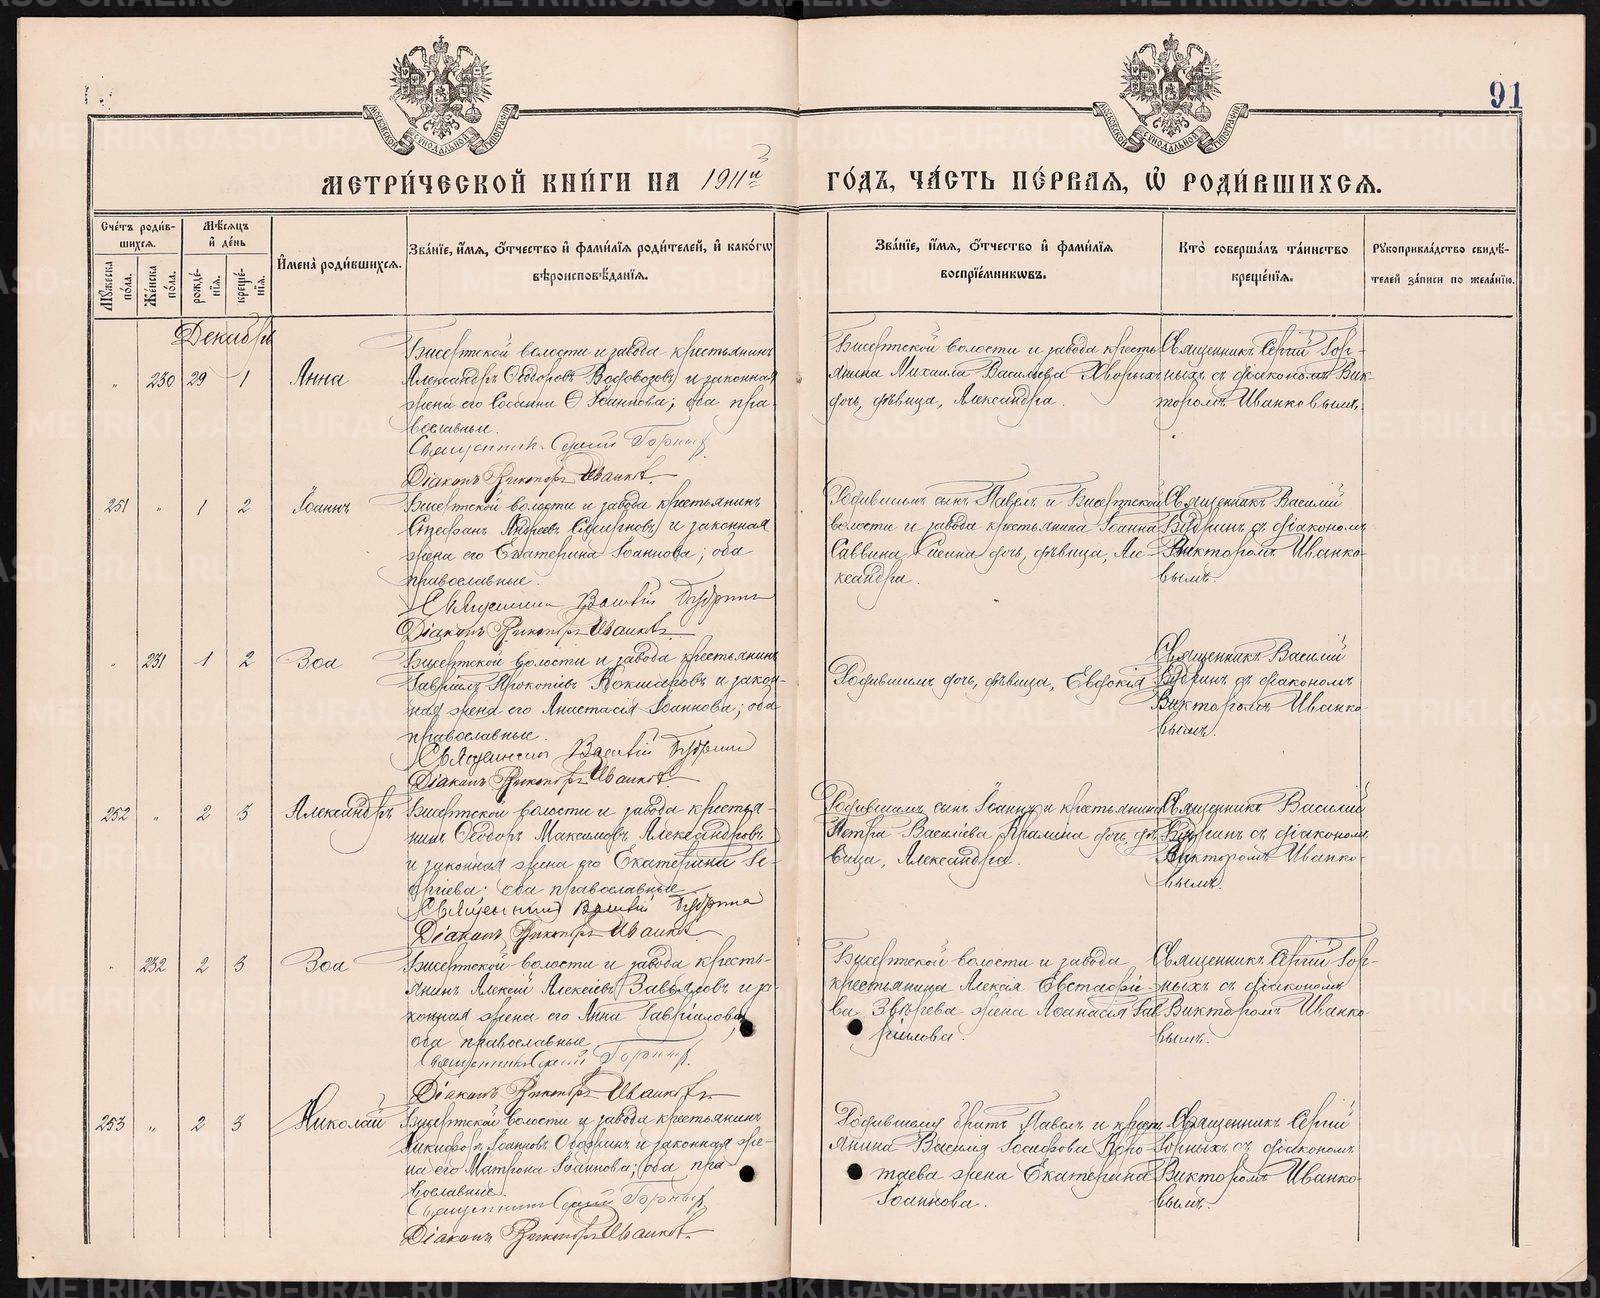 91
МЕТРИ́ЧЕСКОЙ КНИ́ГИ НА 1911й ГО́ДЪ, ЧА́СТЬ ПЕ́РВАЯ, Ѡ РОДИ́ВШИХСЯ.
Сче́тъ роди́в-
шихся.
Му́жеска по́ла.
Же́нска по́ла.
Мѣ́сяцъ и де́нь
рожде́нїя.
креще́нїя.
Имена̀ роди́вшихся.
Зва́нїе, и́мя, о́тчество и фами́лїя роди́телей, и како́гѡ
вѣроисповѣ́данїя.
Зва́нїе, и́мя, о́тчество и фами́лїя
воспрїе́мникѡвъ.
Кто̀ соверша́лъ та́инство
креще́нїя.
Рꙋкоприкла́дство свидѣ́-
телей за́писи по жела́нїю.
Декабрь
„ 230 29 1 Анна
Бисертской волости и завода крестьянинъ
Александръ Ѳеодоровъ и законная
жена его Ѳ. Іоаннова; оба пра-
вославные.
Священникъ Сергій Горныхъ
Діаконъ Викторъ Иванковъ
Бисертской волости и завода кресть-
янина Михаила Васильева Хворыхъ
дочь, дѣвица, Александра.
Священникъ Сергій Гор-
ныхъ с діакономъ Вик-
торомъ Иванковымъ.
251 „ 1 2 Іоаннъ
Бисертской волости и завода крестьянинъ
Стефанъ Андреевъ и законная
жена его Екатерина Іоаннова; оба
православные.
Священникъ Василій Будринъ
Діаконъ Викторъ Иванковъ
Родившимъ сынъ Павелъ и Бисертской
волости и завода крестьянина Іоанна
Саввина дочь, дѣвица, Але-
ксандра.
Священникъ Василій
Будринъ с діакономъ
Викторомъ Иванко-
вымъ.
„ 231 1 2 Зоа
Бисертской волости и завода крестьянинъ
Гавріилъ Прокопіевъ Кокшаровъ и закон-
ная жена его Анастасія Іоаннова; оба
православные.
Священникъ Василій Будринъ
Діаконъ Викторъ Иванковъ
Родившимъ дочь, дѣвица, Евдокія
Священникъ Василій
Будринъ с діакономъ
Викторомъ Иванко-
вымъ.
252 „ 2 3 Александръ
Бисертской волости и завода крестья-
нинъ Ѳеодоръ Максимовъ Александровъ
и законная жена его Екатерина Ге-
оргіева; оба православные.
Священникъ Василій Будринъ
Діаконъ Викторъ Иванковъ
Родившимъ сынъ Іоаннъ и крестьянина
Петра Васильева дочь, дѣ-
вица, Александра.
Священникъ Василій
Будринъ с діакономъ
Викторомъ Иванко-
вымъ.
„ 232 2 3 Зоа
Бисертской волости и завода кресть-
янинъ Алексій Алексѣевъ Завьяловъ и за-
конная жена его Анна Гавріилова;
оба православные.
Священникъ Сергій Горныхъ
Діаконъ Викторъ Иванковъ
Бисертской волости и завода
крестьянина Алексія Евстафіе-
ва Звѣрева жена Аѳанасія Гав-
ріилова.
Священникъ Сергій Гор-
ныхъ с діакономъ
Викторомъ Иванко-
вымъ.
253 „ 2 3 Николай
Бисертской волости и завода крестьянинъ
Никифоръ Іоанновъ и законная же-
на его Матрона Іоаннова; оба пра-
вославные.
Священникъ Сергій Горныхъ
Діаконъ Викторъ Иванковъ
Родившему братъ Павелъ и кресть-
янина Василія Іосифова Коро-
таева жена Екатерина
Іоаннова.
Священникъ Сергій
Горныхъ съ діакономъ
Викторомъ Иванко-
вымъ.
METRIKI.GASO-URAL.RU